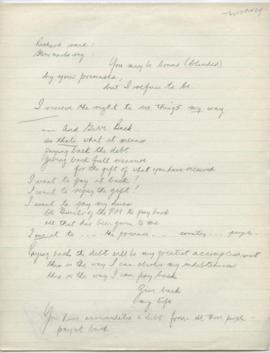 Richard said:
You may be bound (blinded)
by your promises,
but I refuse to be.
I reserve the right to see things my way
.... And Give Back.
so thats what it means
paying back the debt
giving back full measure
for the gift of what you have received
I want to pay it back!
I want to repay the gift!
I want to pay my dues
to pay back
all that has been given to me
I owe it to .... the .... country ... people
Paying back the debt will be my greatest accomplishment
this is the way I can my indebtedness
this is the way I can pay back
Give back
my life
You have accumulated a debt from all these people
pay it back